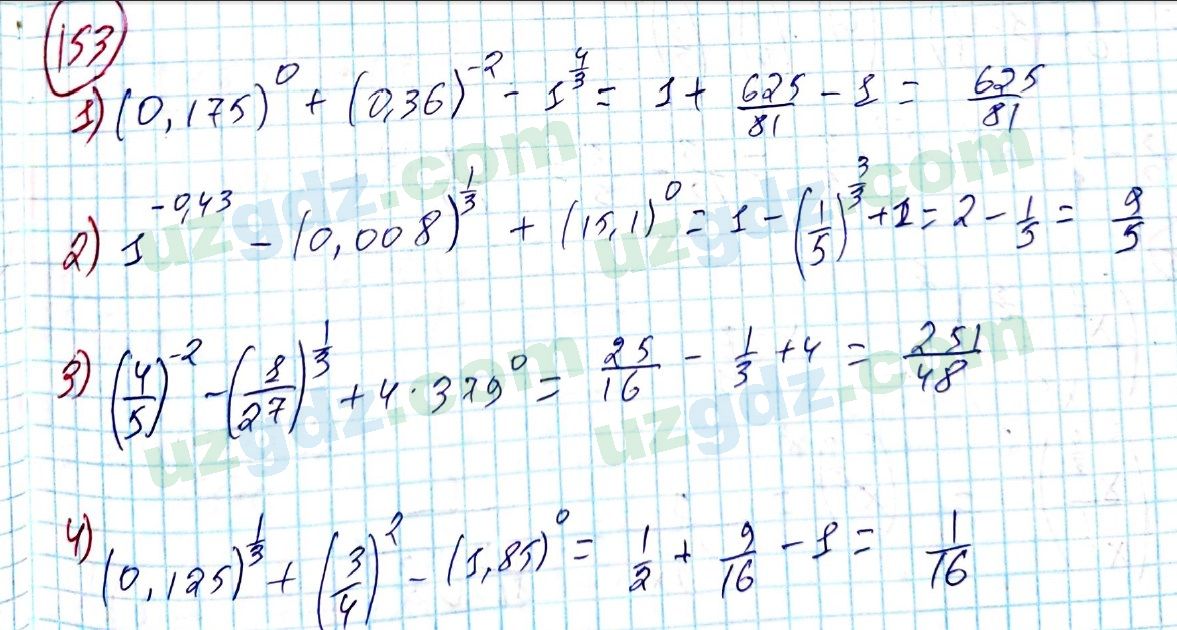 153
1) (0,175)^0 + (0,36)^-2 - 1^4/3 = 1 + 625/81 - 1 = 625/81
2) 1^-0,43 - (0,008)^1/3 + (15,1)^0 = 1 - (1/5)^3/3 + 1 = 2 - 1/5 = 9/5
3) (4/5)^-2 - (1/27)^1/3 + 4 · 379^0 = 25/16 - 1/3 + 4 = 251/48
4) (0,125)^1/3 + (3/4)^2 - (1,85)^0 = 1/2 + 9/16 - 1 = 1/16
uzgdz.com
uzgdz.com
uzgdz.com
uzgdz.com